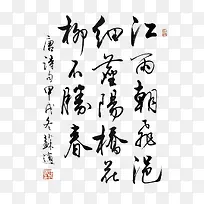 江雨朝飛浥
細塵陽橋花
柳不勝春
唐詩句甲戌冬蘇